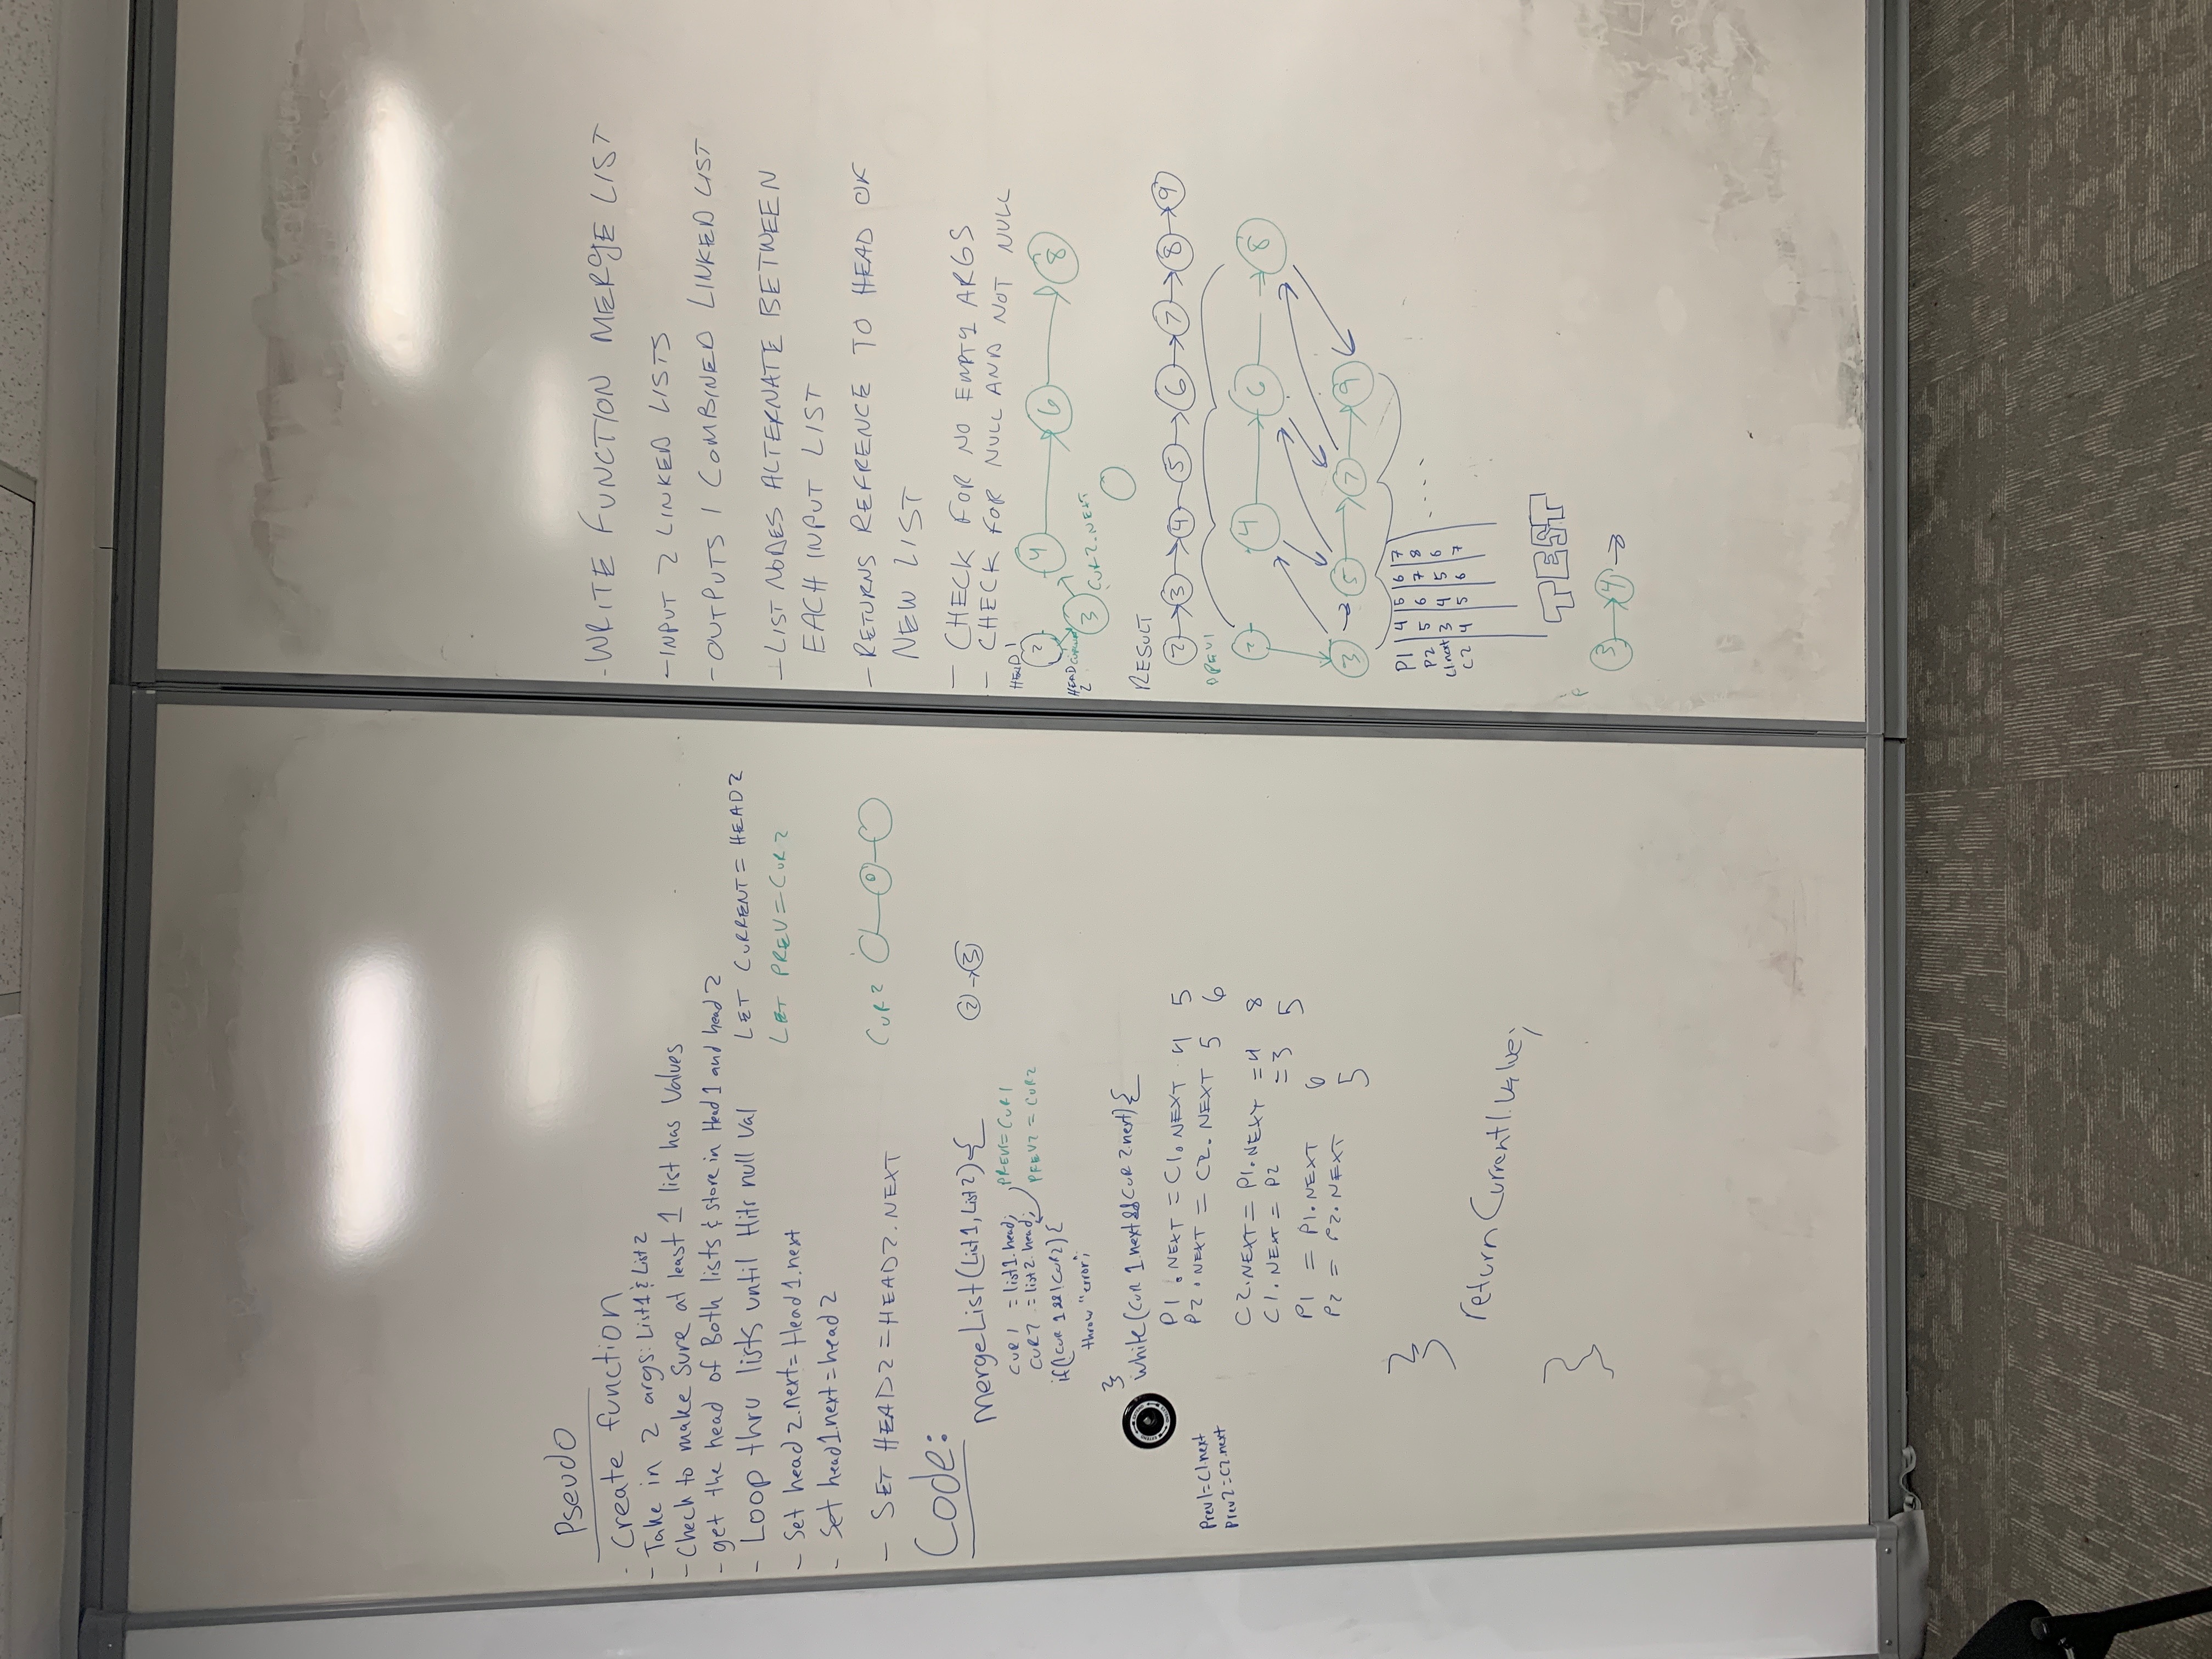 Pseudo
- Create function
- Take in 2 args: List1 & List2
- Check to make Sure at least 1 list has Values
- get the head of Both lists & store in Head1 and head2
- Loop thru lists until Hits null val
- Set head2.next= Head1.next
- Set head1.next=head2
- SET HEAD2=HEAD2.NEXT
LET CURRENT=HEAD2
LET PREV=CUR2
CUR2
Code:
mergeList(List1,List2){
2→3
CUR1 =list1.head;
PREV1=CUR1
CUR2 =list2.head;
PREV2=CUR2
if(!CUR1 && !CUR2){
throw "error";
}
while(CUR1.next&&CUR2.next){
P1.NEXT=C1.NEXT 4 5
P2.NEXT=C2.NEXT 5 6
Prev1=C1.next
Prev2=C2.next
C2.NEXT=P1.NEXT =4 8
C1.NEXT=P2 =3 5
P1 = P1.NEXT 6
P2 = P2.NEXT 5
}
return Current1.value;
}
-WRITE FUNCTION MERGE LIST
-INPUT 2 LINKED LISTS
-OUTPUTS 1 COMBINED LINKED LIST
-LIST NODES ALTERNATE BETWEEN
EACH INPUT LIST
-RETURNS REFRENCE TO HEAD OF
NEW LIST
- CHECK FOR NO EMPTY ARGS
- CHECK FOR NULL AND NOT NULL
HEAD1
2 4 6 8
HEAD
2
3 CUR2.NEXT
RESULT
2→3→4-5→6→7→8→9
PREV1
2 4 6 8
3 5 7 9
P1 4 5 6 7
P2 5 6 7 8
C1next 3 4 5 6
C2 4 5 6 7
TEST
P
3→4→